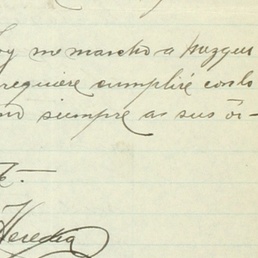 oy me marcho a
requiere cumpliré con lo
mo siempre a sus ór-
Heredia